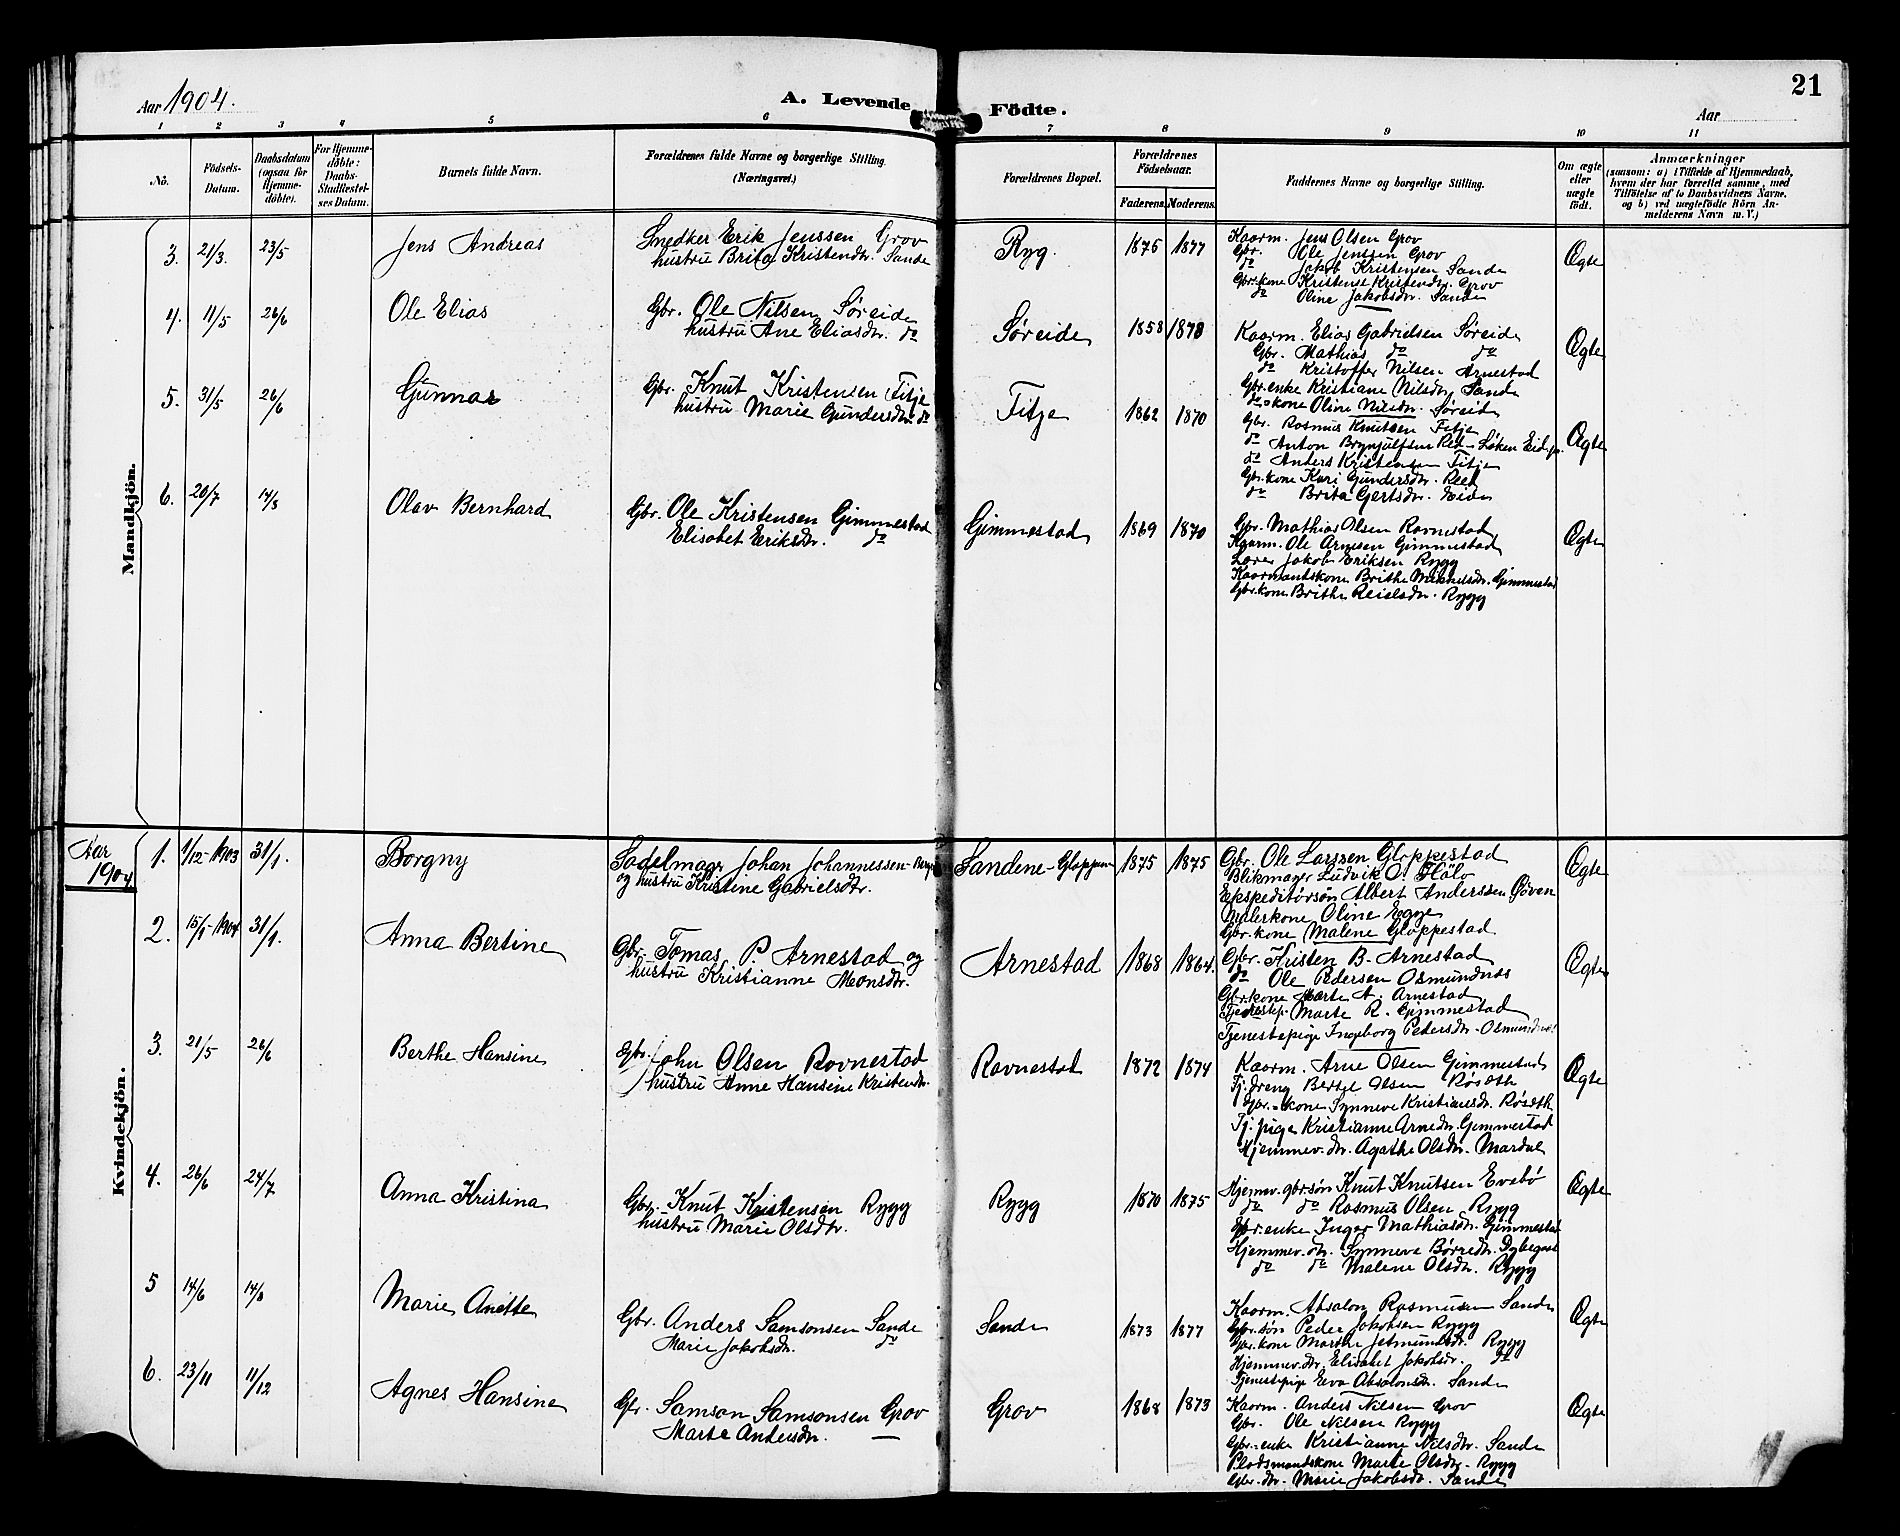 21
Aar 1904.
A. Levende Födte.
Aar
1 2 3 4 5 6 7 8 9 10 11
No.
Födsels-
Datum.
Daabsdatum
(ogsaa for
Hjemme-
döbte).
For Hjemme-
döbte:
Daabs-
Stadfæstel-
ses Datum.
Barnets fulde Navn.
Forældrenes fulde Navne og borgerlige Stilling.
(Næringsvei.)
Forældrenes Bopæl.
Forældrenes
Födselsaar.
Faderens. Moderens.
Faddernes Navne og borgerlige Stilling.
Om ægte
eller
uægte
födt.
Anmærkninger
(saasom: a) i Tilfælde af Hjemmedaab,
hvem der har forrettet samme, med
Tilföielse af to Daabsvidners Navne.
og b) ved uægtefödte Börn An-
melderens Navn m. V.)
Mandkjön.
3. 21/3. 23/5 Jens Andreas
Snedker Erik Jenssen Grov
hustru Brita Kristendtr. Sande
Ryg. 1876 1877
Kaarm. Jens Olsen Grov
Gbr. Ole Jenssen Grov
do Jakob Kristensen Sande
Gbr.kone Kristense Kristendtr. Grov
do Oline Jakobsdtr. Sande
Ægte
4. 11/5 26/6 Ole Elias
Gbr. Ole Nilsen Søreide
hustru Ane Eliasdtr. do
Søreide 1858 1878
Kaarm. Elias Gabrielsen Søreide
Gbr. Mathias do do
do Kristoffer Nilsen Arnestad
Gbr.enke Kristiane Nilsdtr. Sande
do kone Oline Nilsdtr. Søreide
Ægte
5. 31/5 26/6 Gunnar
Gbr. Knut Kristensen Fitje
hustru Marie Gundersdtr. do
Fitje 1862 1870
Gbr. Rasmus Knutsen Fitje
do Anton Brynjulfsen Løken
do Anders Kristensen Fitje
Gbr.kone Kari Gundersdtr. Reed
do Brita Gjertsdtr. Eide
Ægte
6. 20/7 14/8 Olav Bernhard
Gbr. Ole Kristensen Gimmestad
Elisabet Eriksdtr. do
Gimmestad 1869 1870
Gbr. Mathias Olsen Ravnestad
Kaarm. Ole Arnesen Gimmestad
Lærer Jakob Eriksen Rygg
Kaarmandskone Brithe Gimmestad
Gbr.kone Brithe Rygg
Ægte
Aar
1904
Kvindekjön.
1. 1/12-1903 31/1. Borgny
Sadelmager Johan Johannessen
og hustru Kristine Gabrielsdtr.
Sandene-Gloppen 1875 1875
Gbr. Ole Larssen Gloppestad
Blikmager Ludvik O. Flölo
Ekspeditørsøn Albert Anderssen Gjøven
Malerkone Oline Egge
Gbr.kone Malene Gloppestad
Ægte
2. 15/1-1904 31/1. Anna Bertine
Gbr. Tomas P. Arnestad og
hustru Kristianne Monsdtr.
Arnestad 1868 1864.
Gbr. Kristen B. Arnestad
do Ole Pedersen Osmundnæs
Gbr.kone Marte A. Arnestad
Tjenestep. Marte R. Gimmestad
Tjenestepige Ingeborg Pedersdtr. Osmundnæs
Ægte
3. 21/5 26/6 Berthe Hansine
Gbr. John Olsen Ravnestad
hustru Anne Hansine Kristendtr.
Ravnestad 1872 1874
Kaarm. Arne Olsen Gimmestad
Tj.dreng Bertel Olsen Røseth
Gbr.-kone Synneve Kristiansdtr. Røseth
Tj.pige Kristianne Arnedtr. Gimmestad
Hjemmev. dtr. Agathe Olsdtr. Mardal
Ægte
4. 26/6 24/7 Anna Kristina
Gbr. Knut Kristensen Rygg
hustru Marie Olsdtr.
Rygg 1870 1875
Hjemv. gbr.søn Knut Knutsen Evebø
do do Rasmus Olsen Rygg
Gbr.enke Inger Mathiasdtr. Gimmestad
Hjemmev. dtr. Synneva Børredtr.
do do Malene Olsdtr. Rygg
Ægte
5 14/6 14/8 Marie Anette
Gbr. Anders Samsonsen Sande
Marie Jakobsdtr. do
Sande 1873 1877
Kaarm. Absalon Rasmusen Sande
Gbr.søn Peder Jakobsen Rygg
Gbr.kone Marthe Jetmundsdtr. Rygg
Hjemmev. dtr. Elisabet Jakobsdtr. do
Tjenestepige Eva Absalonsdtr. Sande
Ægte
6. 23/11 11/12 Agnes Hansine
Gbr. Samson Samsonsen Grov
Marte Andersdtr. —
Grov 1868 1873
Kaarm. Anders Nilsen Grov
Gbr. Ole Nilsen Rygg
Gbr.-enke Kristianne Nilsdtr. Sande
Pladsmandskone Marte Olsdtr. Rygg
Gbr. dtr. Marie Jakobsdtr. Sande
Ægte